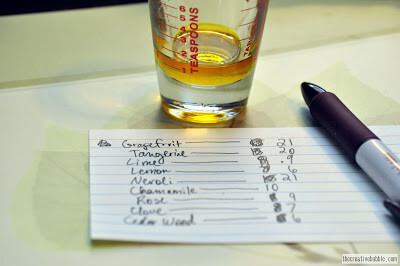 TEASPOONS
Grapefruit 21
Tangerine 20
Lime 9
Lemon 6
Neroli 21
Chamomile 10
Rose 9
Clove 7
Cedar Wood 6
thecreativebubble.com